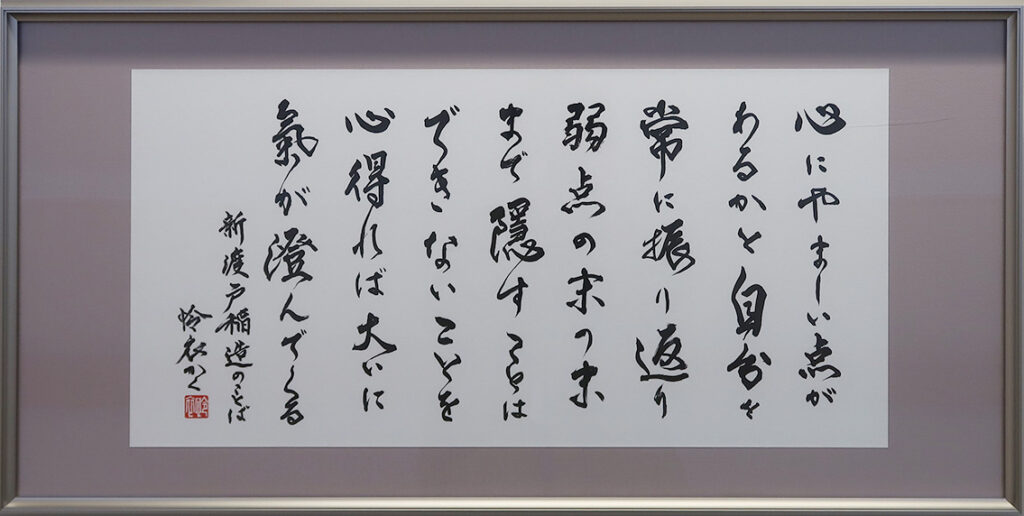 心にやましい点が
あるかと自分を
常に振り返り
弱点の末の末
まで隠すことは
できないことを
心得れば大いに
氣が澄んでくる
新渡戸稲造のことば
怜衣かく